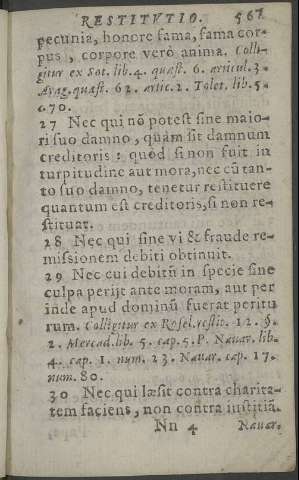 RESTITVTIO. 567
pecunia, honore fama, fama cor-
pus, corpore verò anima. Colli-
gitur ex Sot. lib. 4. quæst. 6. articul. 3.
Arag. quæst. 62. artic. 2. Tolet. lib. 5.
c. 70.
27 Nec qui nõ potest sine maio-
ri suo damno, quàm sit damnum
creditoris: quòd si non fuit in
turpitudine aut mora, nec cũ tan-
to suo damno, tenetur restituere
quantum est creditoris, si non re-
stituat.
28 Nec qui sine vi & fraude re-
missionem debiti obtinuit.
29 Nec cui debitũ in specie sine
culpa perijt ante moram, aut per
inde apud dominũ fuerat peritu
rum. Colligitur ex Rosel. restit. 12. §.
2. Mercad. lib. 5. cap. 5. P. Nauar. lib.
4. cap. 1. num. 23. Nauar. cap. 17.
num. 80.
30 Nec qui læsit contra charita-
tem faciens, non contra iustitiã.
Nn 4 Nauar.